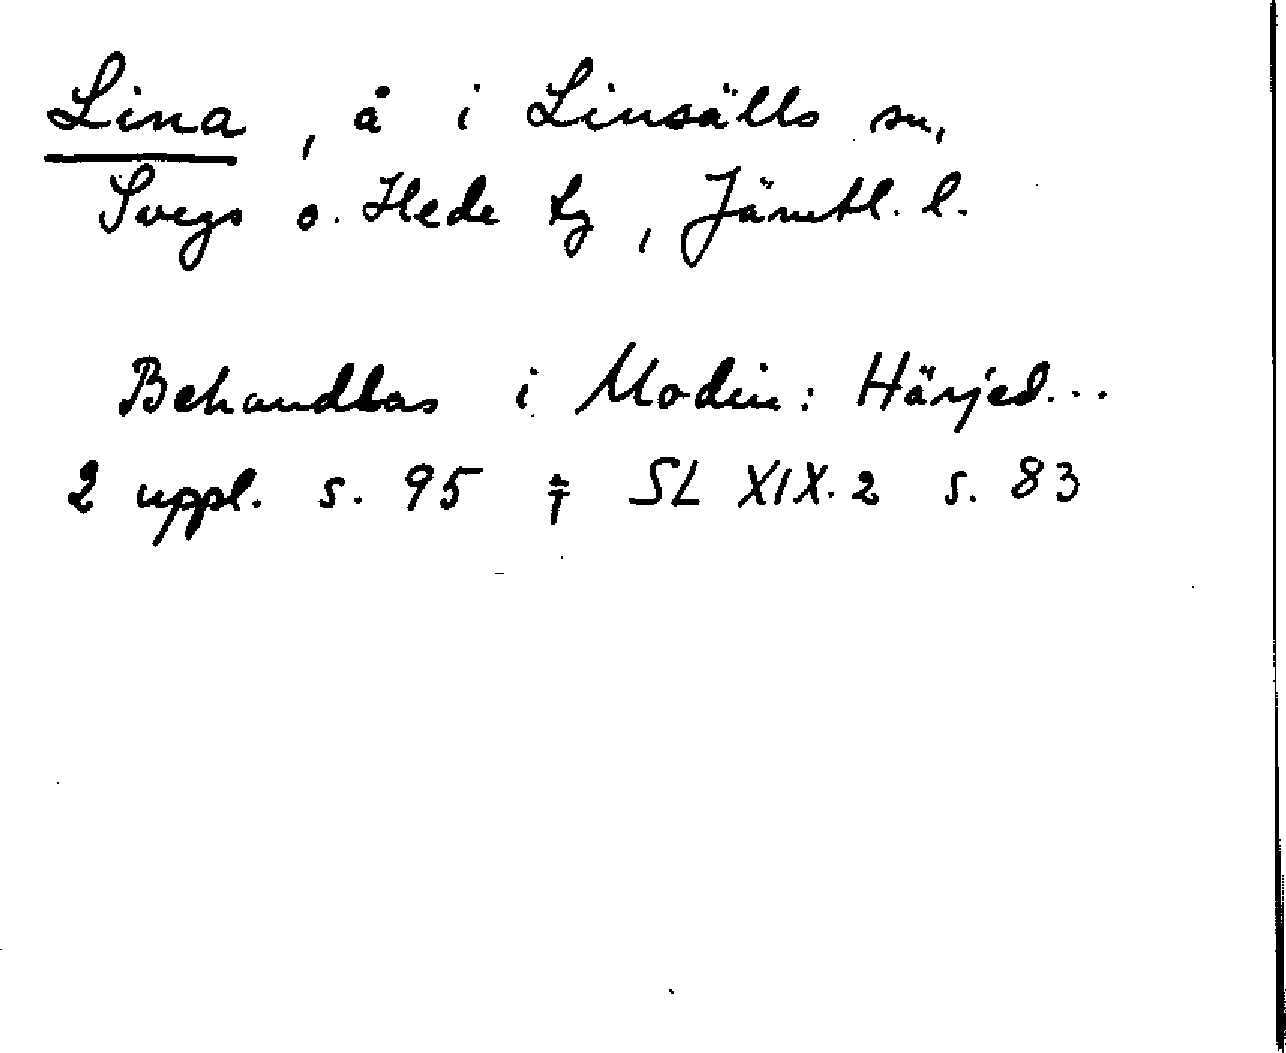 Lina, å i Linsälls sn,
Svegs o. Hede tg, Jämtl. l.
Behandlas i Modin: Härjed...
2 uppl. s. 95 SL XIX. 2 s. 83